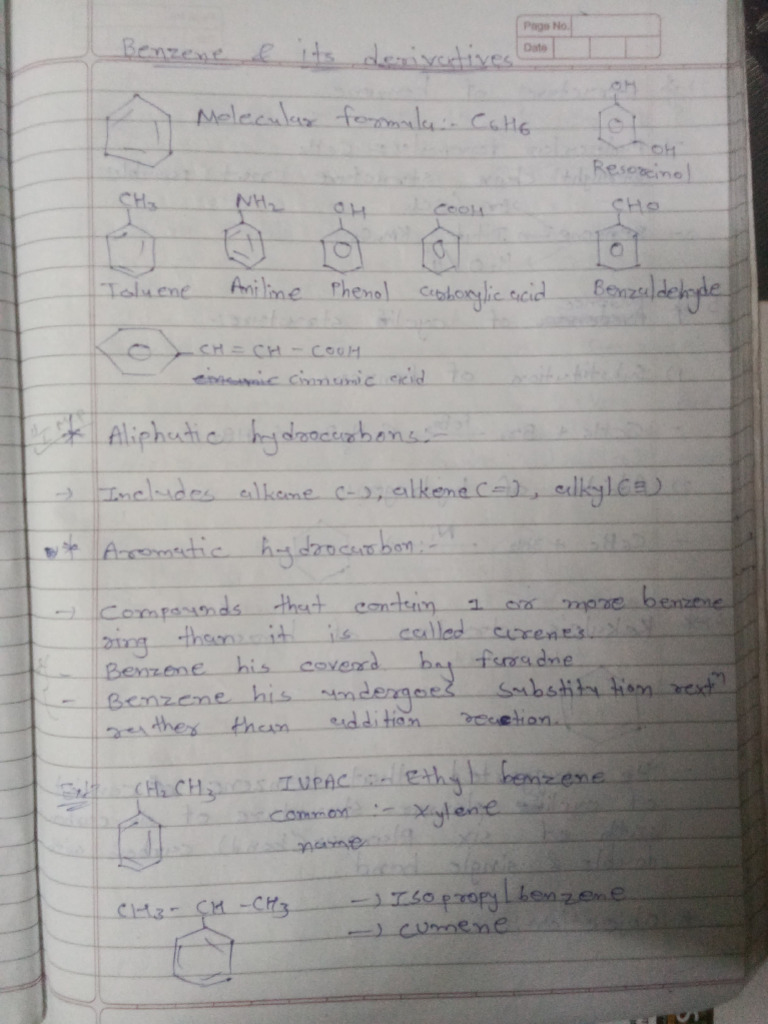 Page No.
Date
Benzene & its derivatives
Molecular formula:- C6H6
OH
OH
Resorcinol
CH3 NH2 OH COOH CHO
Toluene Aniline Phenol carboxylic acid Benzaldehyde
CH = CH - COOH
cinnamic acid
* Aliphatic hydrocarbons:-
→ Includes alkane (-), alkene (=), alkyl (≡)
* Aromatic hydrocarbon:-
→ Compounds that contain 1 or more benzene
ring than it is called arenes.
- Benzene his coverd by faradne
- Benzene his undergoes substitution rextn
rather than addition reaction.
Ex:- CH2CH3 IUPAC :- Ethyl benzene
common :- xylene
name
CH3 - CH - CH3 → Isopropyl benzene
→ cumene